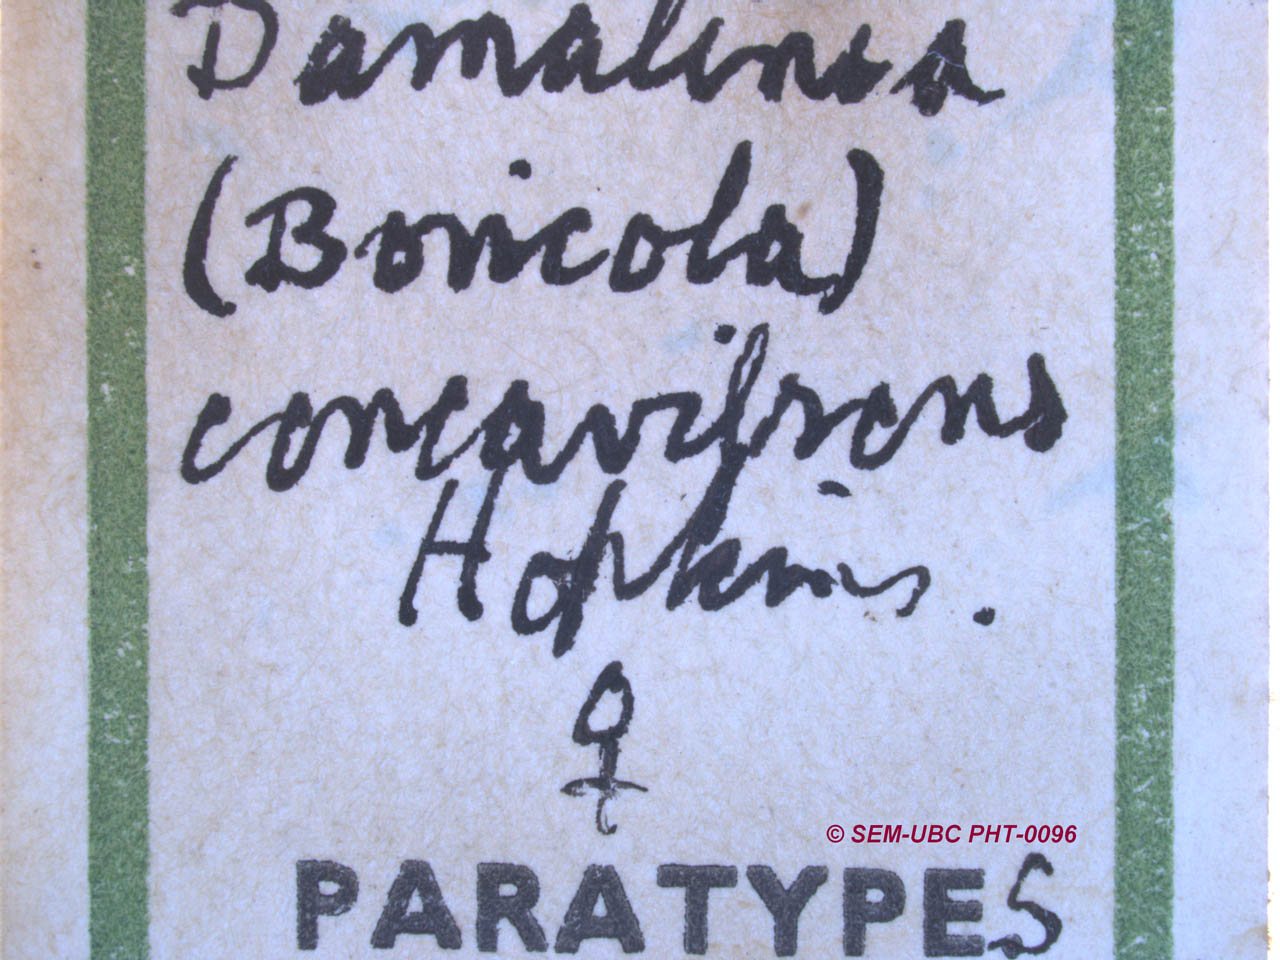 Damalinia
(Bovicola)
concavifrons
Hopkins.
♀
© SEM-UBC PHT-0096
PARATYPES